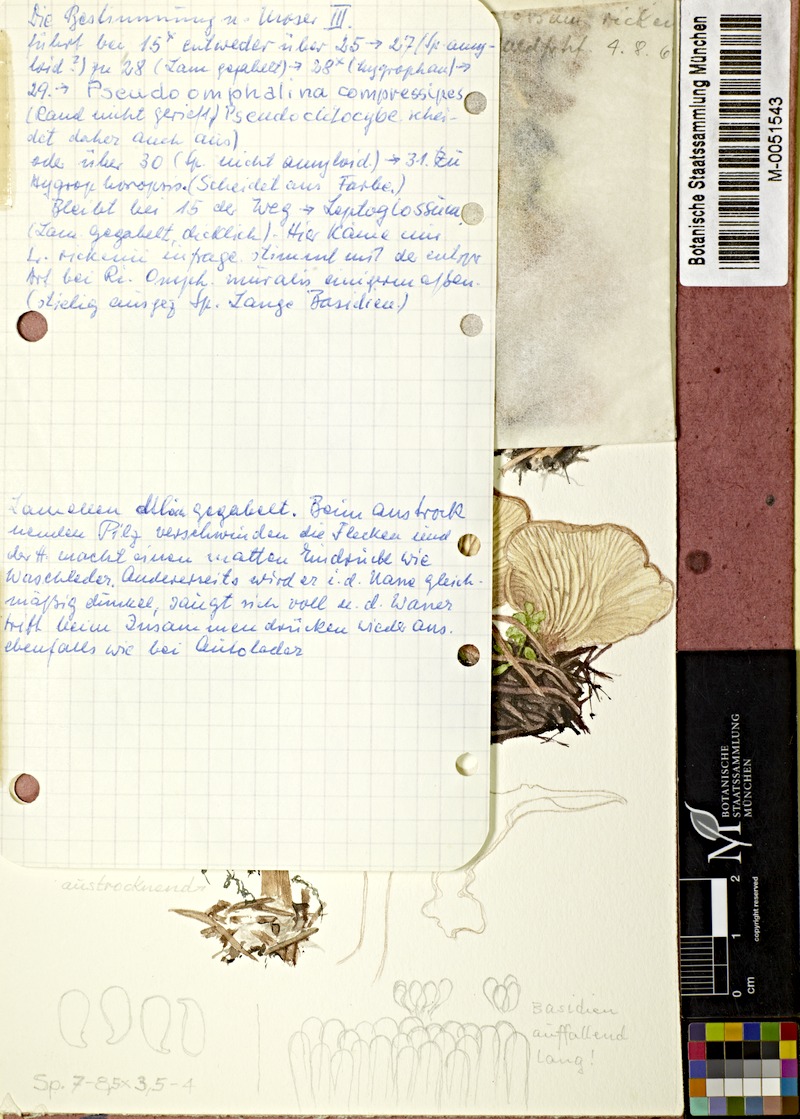 Die Bestimmung n. Moser III.
führt bei 15x entweder über 25 → 27 (Sp. amy-
loid?) zu 28 (Lam. gegabelt) → 28x (hygrophan) →
29. → Pseudoomphalina compressipes
(Rand nicht gerieft, Pseudoclitocybe schei-
det daher auch aus)
oder über 30 (Sp. nicht amyloid) → 31. zu
Hygrophoropsis. (Scheidet aus Farbe.)
Bleibt bei 15 der Weg → Leptoglossum
(Lam. gegabelt, dicklich). Hier käme nur
L. rickenii infrage. Stimmt mit der
Art bei Ri. Omph. muralis einigermaßen.
(stielig ausgez. Sp. Lange Basidien)
Lamellen gegabelt. Beim austrock
nenden Pilz verschwinden die Flecken und
der H. macht einen matten Eindruck wie
Waschleder. Andererseits wird er i. d. Nässe gleich-
mäßig dunkel, saugt sich voll u. d. Wasser
tritt beim Zusammendrücken wieder aus.
ebenfalls wie bei Autoleder
ricken
4. 8. 6
austrocknend
Sp. 7-8,5 x 3,5-4
Basidien
auffallend
lang!
Botanische Staatssammlung München
M-0051543
BOTANISCHE
STAATSSAMMLUNG
MÜNCHEN
copyright reserved
0 1 2
cm